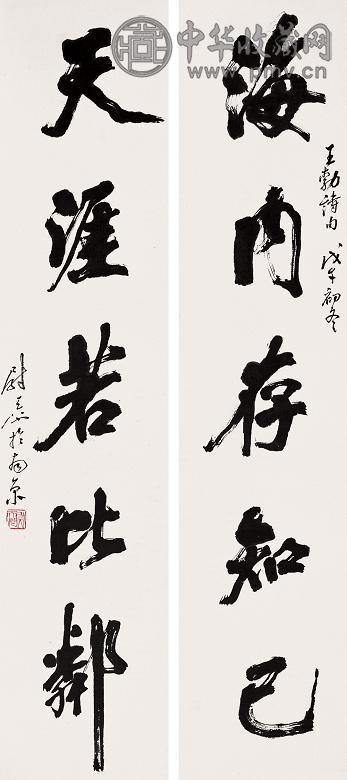 海内存知己
王勃诗句 戊午初冬
天涯若比鄰
尉天池於南京
中华收藏网
www.pmv.cn